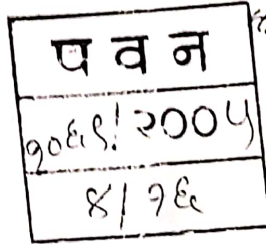 प व न
१०६९/२००५
४/१६